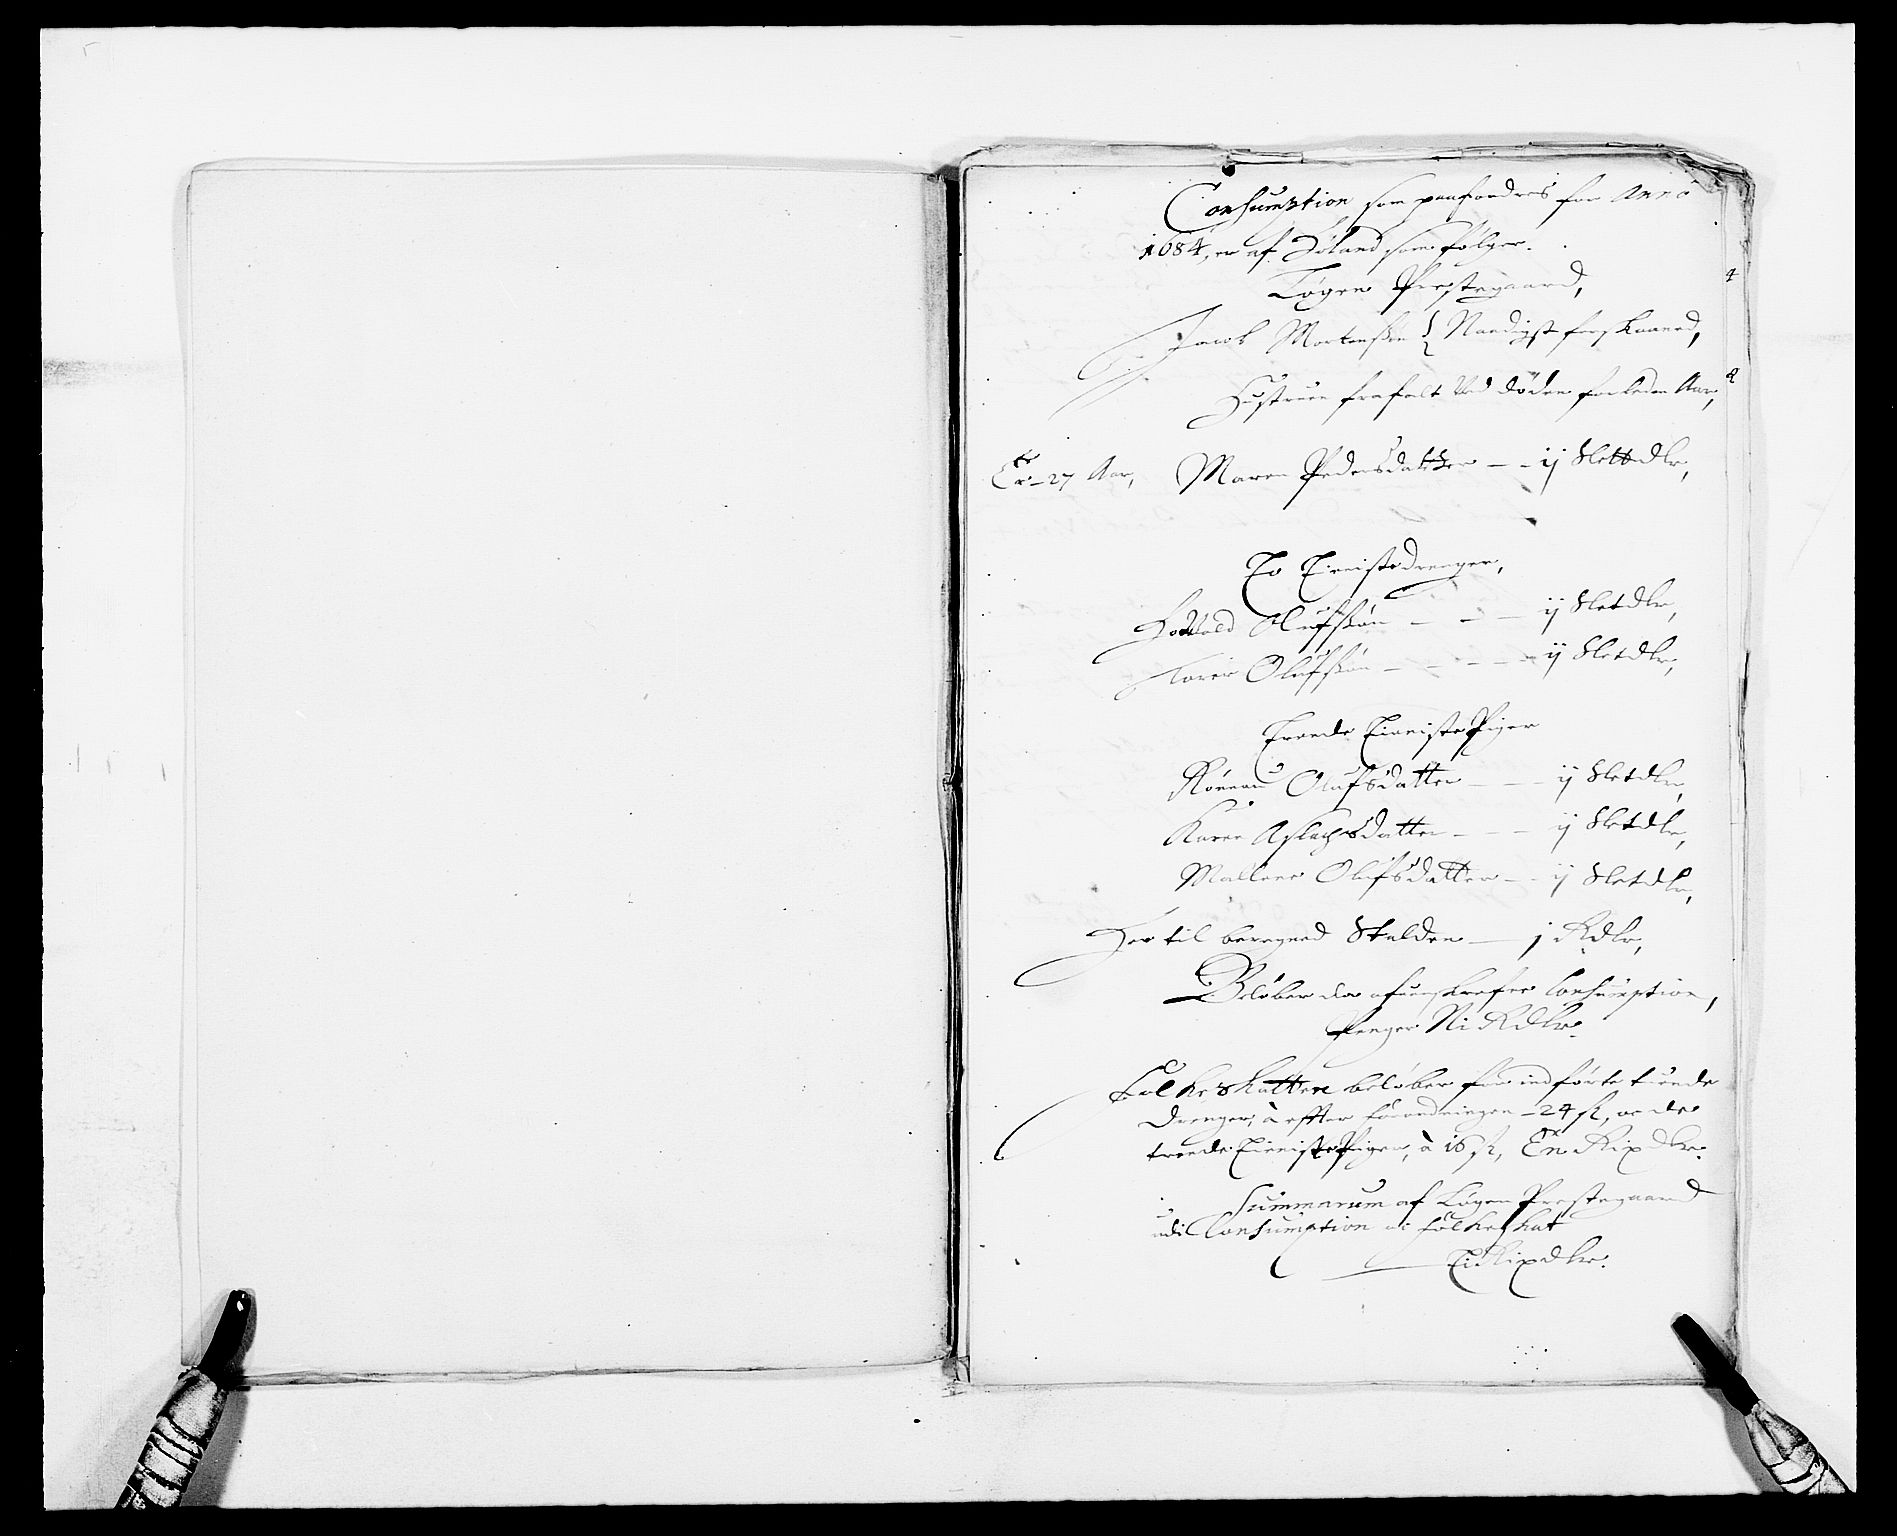 Consumption som paafordres for Anno
1684, er af Høland som følger.
Løgen Prestegaard,
Jacob Mortensøn { Naadigst forskaaned,
Hustruen frafalt ved døden forleden Aar,
Er - 27 Aar, Maren Pedersdatter - - ij Slettdlr,
To Tienistedrenger,
Hovold Olufsøn - - - ij Sletdlr,
Olufsøn - - - - - ij Sletdlr,
Trende Tieniste Piger
Rønnau Olufsdatter - - - ij Sletdlr,
Karen Aslachsdatter - - - ij Sletdlr,
Mallene Olufsdatter - - ij Sletdlr,
Her til beregned Stalden - j Rdlr,
Beløber da Consumption,
Penger Ni Rdlr.
Folkeskatten beløber for indførte tuende
drenger, à effter forordningen - 24 sk, oc de
trende Tieniste Piger, à 16 sk, En Rixdlr.
Summarum af Løgen Prestegaard
udi Consumption oc folkeskat
Ti Rixdlr.